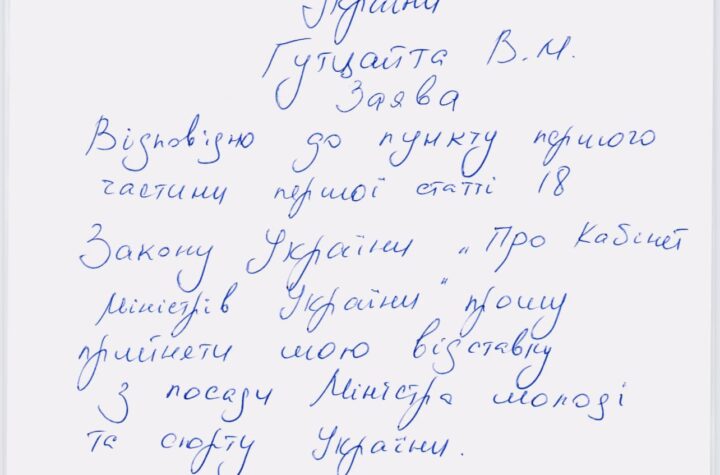 України
Гутцайта В.М.
Заява
Відповідно до пункту першого
частини першої статті 18
Закону України „Про Кабінет
Міністрів України" прошу
прийняти мою відставку
з посади Міністра молоді
та спорту України.